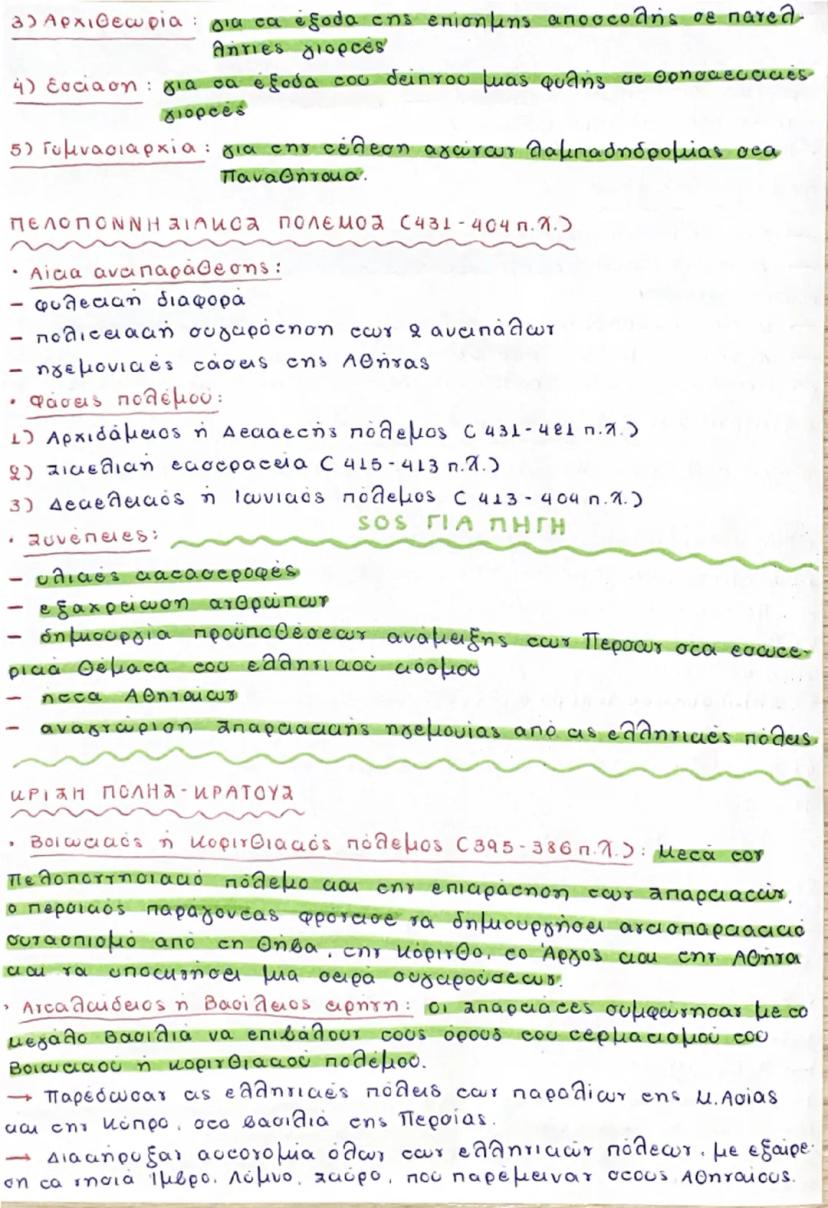 3) Αρχιθεωρία: για τα έξοδα της επίσημης αποστολής σε πανελ-
λήνιες γιορτές
4) Εστίαση: για τα έξοδα του δείπνου μιας φυλής σε θρησκευτικές
γιορτές
5) Γυμνασιαρχία: για την τέλεση αγώνων λαμπαδηδρομίας στα
Παναθήναια.
ΠΕΛΟΠΟΝΝΗΣΙΑΚΟΣ ΠΟΛΕΜΟΣ (431-404 π.Χ.)
• Αίτια αντιπαράθεσης:
- φυλετική διαφορά
- πολιτειακή σύγκρουση των 2 αντιπάλων
- ηγεμονικές τάσεις της Αθήνας
• Φάσεις πολέμου:
1) Αρχιδάμειος ή Δεκαετής πόλεμος (431-421 π.Χ.)
2) Σικελική εκστρατεία (415-413 π.Χ.)
3) Δεκελεικός ή Ιωνικός πόλεμος (413-404 π.Χ.)
SOS ΓΙΑ ΠΗΓΗ
• Συνέπειες:
- υλικές καταστροφές
- εξαχρείωση ανθρώπων
- δημιουργία προϋποθέσεων ανάμειξης των Περσών στα εσωτε-
ρικά θέματα του ελληνικού κόσμου
- ήττα Αθηναίων
- αναγνώριση Σπαρτιατικής ηγεμονίας από τις ελληνικές πόλεις
ΚΡΙΣΗ ΠΟΛΗΣ-ΚΡΑΤΟΥΣ
• Βοιωτικός ή Κορινθιακός πόλεμος (395-386 π.Χ.): Μετά τον
Πελοποννησιακό πόλεμο και την επικράτηση των Σπαρτιατών,
ο περσικός παράγοντας φρόντισε να δημιουργήσει αντισπαρτιατικό
συνασπισμό από τη Θήβα, την Κόρινθο, το Άργος και την Αθήνα
και να υποκινήσει μια σειρά συγκρούσεων.
• Ανταλκίδειος ή Βασίλειος ειρήνη: οι Σπαρτιάτες συμφώνησαν με το
μεγάλο βασιλιά να επιβάλουν τους όρους του τερματισμού του
Βοιωτικού ή κορινθιακού πολέμου.
→ Παρέδωσαν τις ελληνικές πόλεις των παραλίων της Μ. Ασίας
και την Κύπρο, στο βασιλιά της Περσίας.
→ Διακήρυξαν αυτονομία όλων των ελληνικών πόλεων, με εξαίρε-
ση τα νησιά Ίμβρο, Λήμνο, Σκύρο, που παρέμειναν στους Αθηναίους.